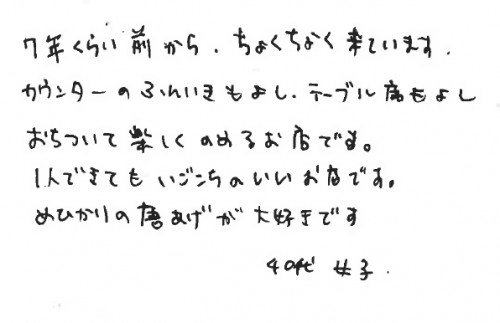 7年くらい前から、ちょくちょく来ています.
カウンターのふんいきもよし、テーブル席もよし
おちついて楽しくのめるお店です。
1人できてもいごこちのいいお店です。
めひかりの唐あげが大好きです
40代 女子.